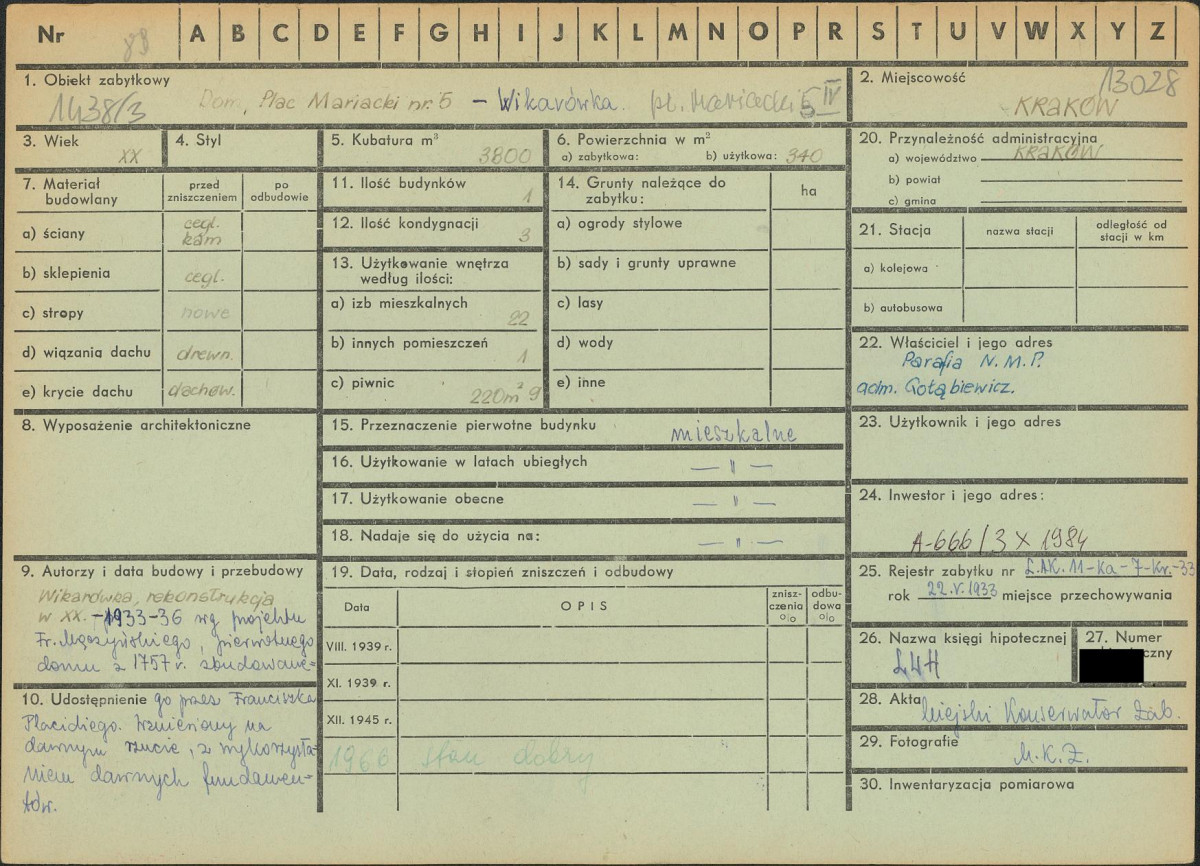 Nr 88 A B C D E F G H I J K L M N O P R S T U V W X Y Z
1. Obiekt zabytkowy
1438/3 Dom, Plac Mariacki nr. 5 – Wikarówka. pl. Mariacki 5 IV
2. Miejscowość 13028
KRAKÓW
3. Wiek
XX
4. Styl
5. Kubatura m³
3800
6. Powierzchnia w m²
a) zabytkowa: b) użytkowa: 340
20. Przynależność administracyjna
a) województwo KRAKÓW
b) powiat
c) gmina
7. Materiał budowlany
przed zniszczeniem
po odbudowie
a) ściany cegl. kam
b) sklepienia cegl.
c) stropy nowe
d) wiązania dachu drewn.
e) krycie dachu dachow.
11. Ilość budynków
1
12. Ilość kondygnacji
3
13. Użytkowanie wnętrza
według ilości:
a) izb mieszkalnych
22
b) innych pomieszczeń
1
c) piwnic
220m² 9
14. Grunty należące do
zabytku:
ha
a) ogrody stylowe
b) sady i grunty uprawne
c) lasy
d) wody
e) inne
21. Stacja
nazwa stacji
odległość od
stacji w km
a) kolejowa
b) autobusowa
22. Właściciel i jego adres
Parafia N.M.P.
adm. Gołąbiewicz.
8. Wyposażenie architektoniczne
15. Przeznaczenie pierwotne budynku mieszkalne
16. Użytkowanie w latach ubiegłych — " —
17. Użytkowanie obecne — " —
18. Nadaje się do użycia na: — " —
23. Użytkownik i jego adres
24. Inwestor i jego adres:
A-666/3 X 1984
9. Autorzy i data budowy i przebudowy
Wikarówka, rekonstrukcja
w XX. – 1933-36 wg projektu
Fr. Mączyńskiego, pierwotnego
domu z 1757 r. zbudowane-
10. Udostępnienie go przez Franciszka
Placidiego. Wzniesiony na
dawnym rzucie, z wykorzysta-
niem dawnych fundamen-
tów.
19. Data, rodzaj i stopień zniszczeń i odbudowy
Data
OPIS
znisz-
czenia
o/o
odbu-
dowa
o/o
VIII. 1939 r.
XI. 1939 r.
XII. 1945 r.
1966 stan dobry
25. Rejestr zabytku nr L.AK.11-Ka-7-Kr.-33
rok 22.V.1933 miejsce przechowywania
26. Nazwa księgi hipotecznej
L4H
27. Numer
czny
28. Akta Miejski Konserwator Zab.
29. Fotografie
M.K.Z.
30. Inwentaryzacja pomiarowa